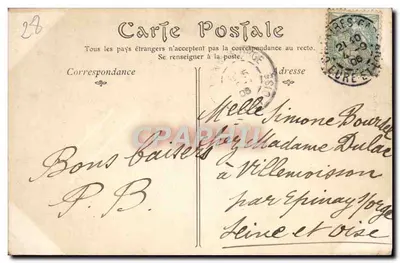 28
Carte Postale
Tous les pays étrangers n'acceptent pas la correspondance au recto.
Se renseigner à la poste.
Correspondance
Adresse
Bons baisers
P. B.
Melle Simone
chez Madame Dulac
à Villemoisson
par Epinay s/orge
Seine et Oise